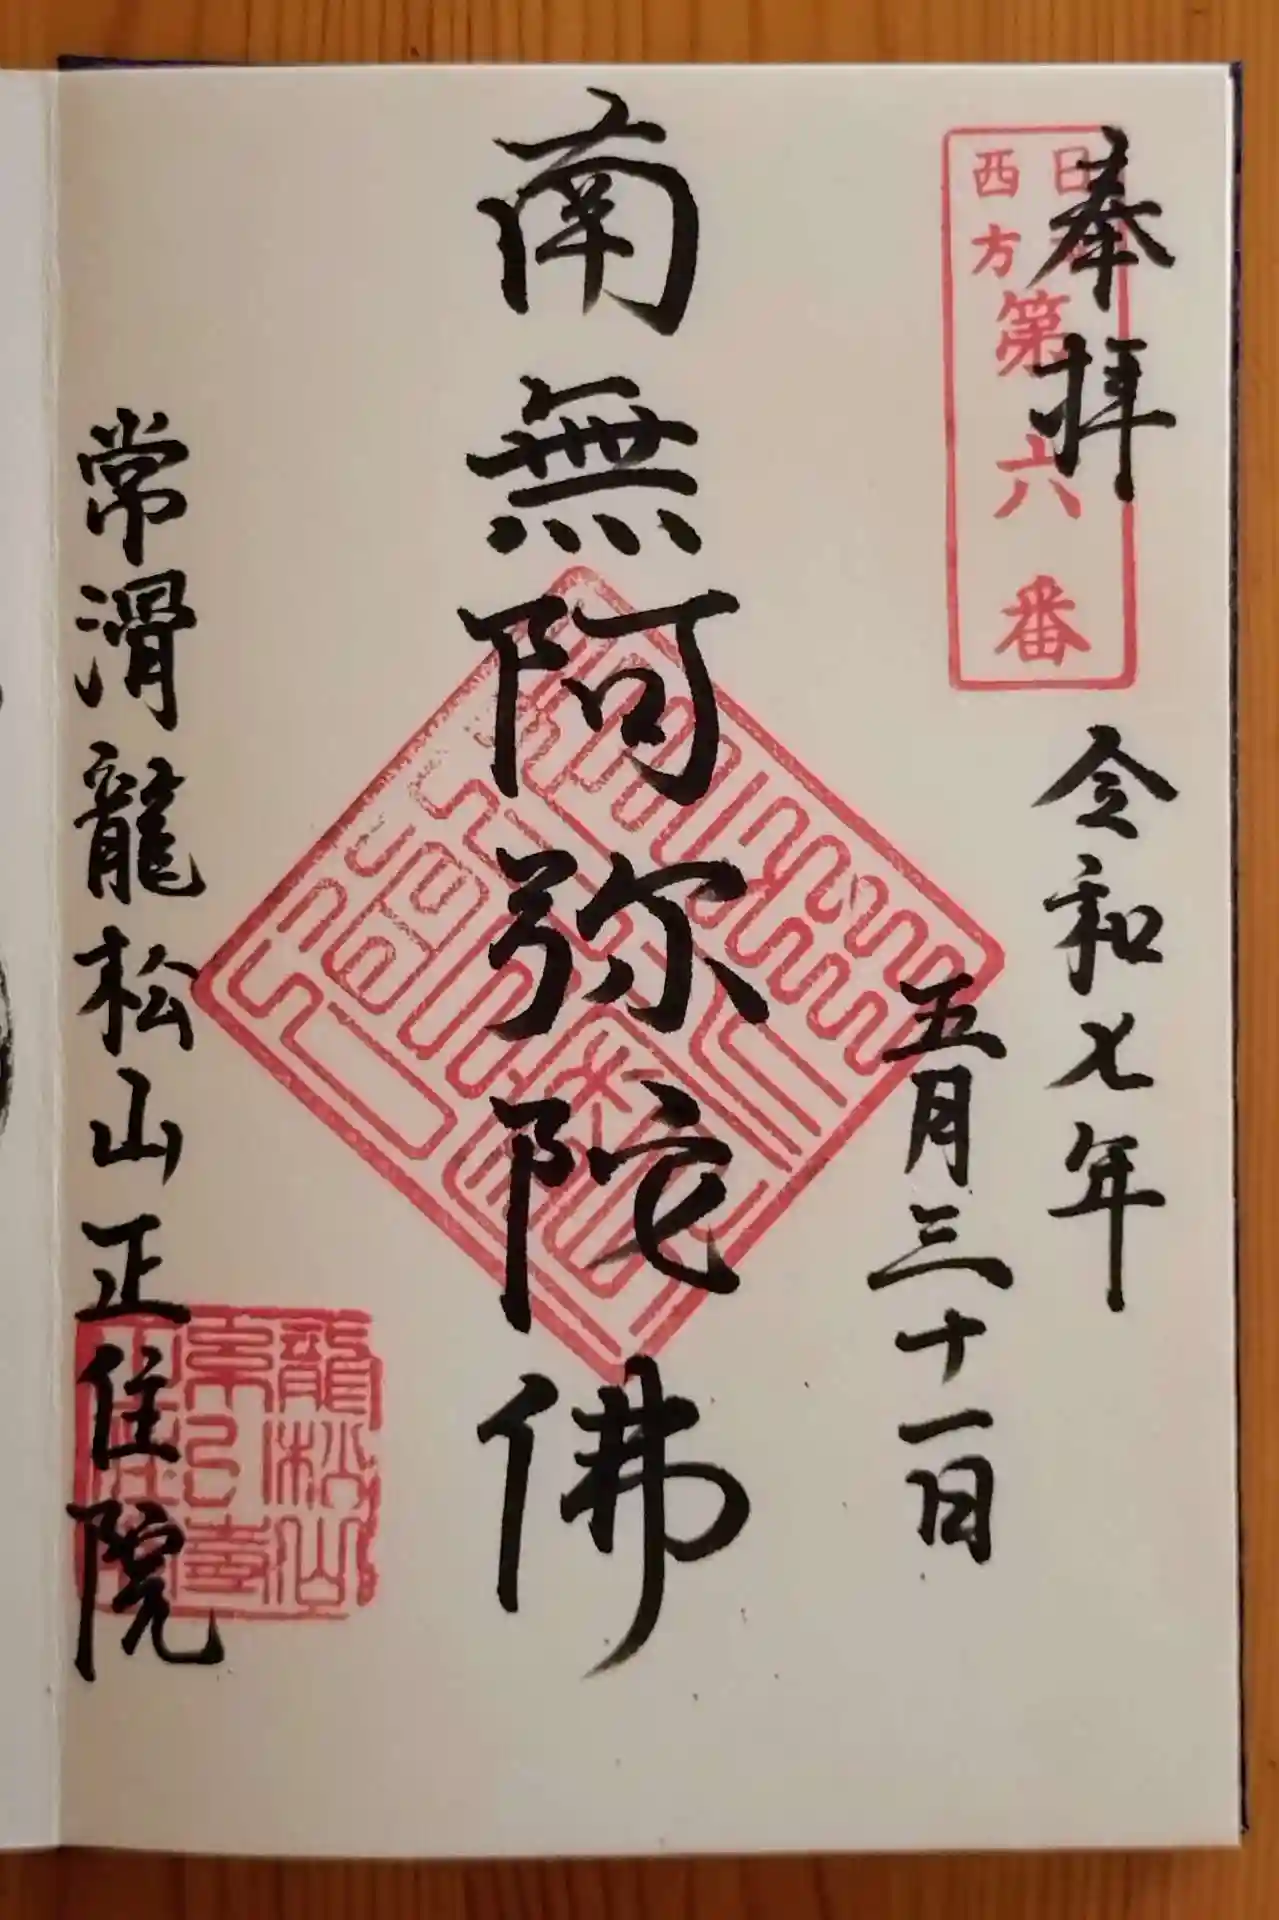 奉拝
西方
第六番
令和七年
五月三十一日
南無阿弥陀佛
常滑龍松山正住院
龍松山